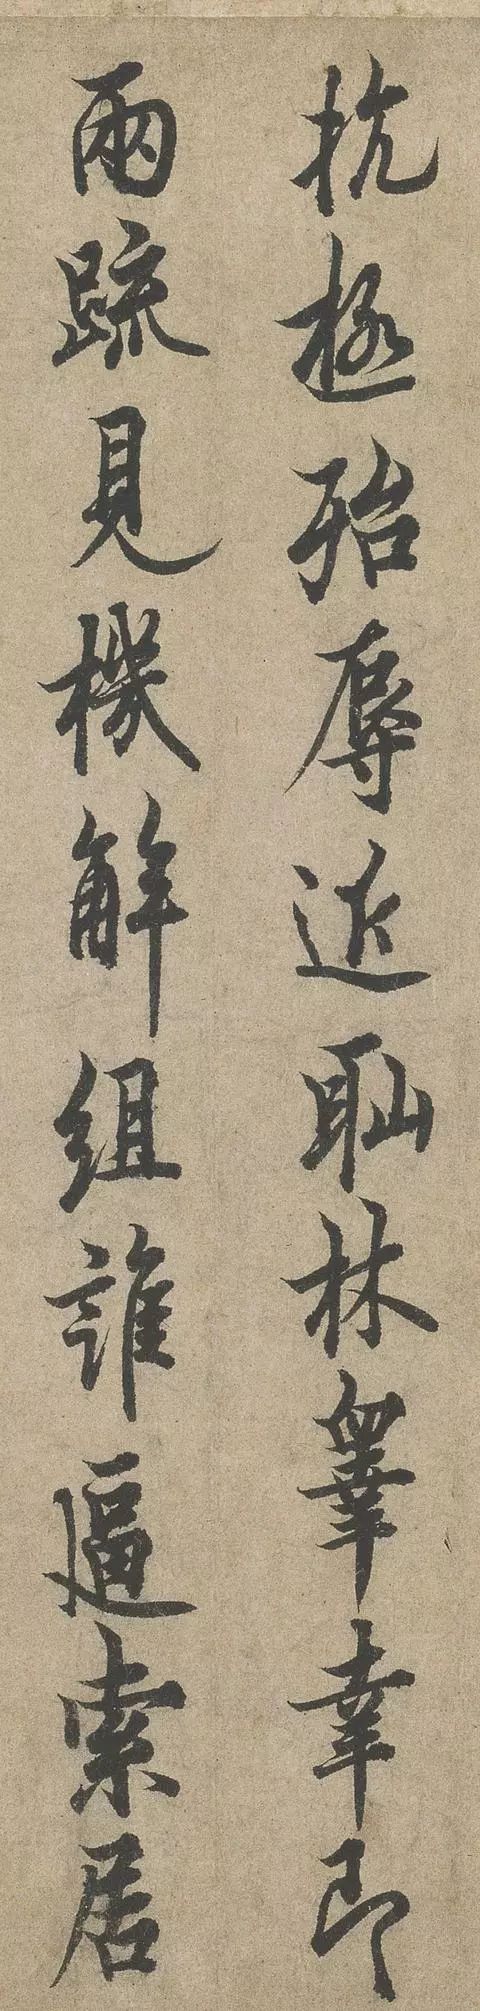 抗極殆辱近耻林睪幸即
兩疏見機解組誰逼索居